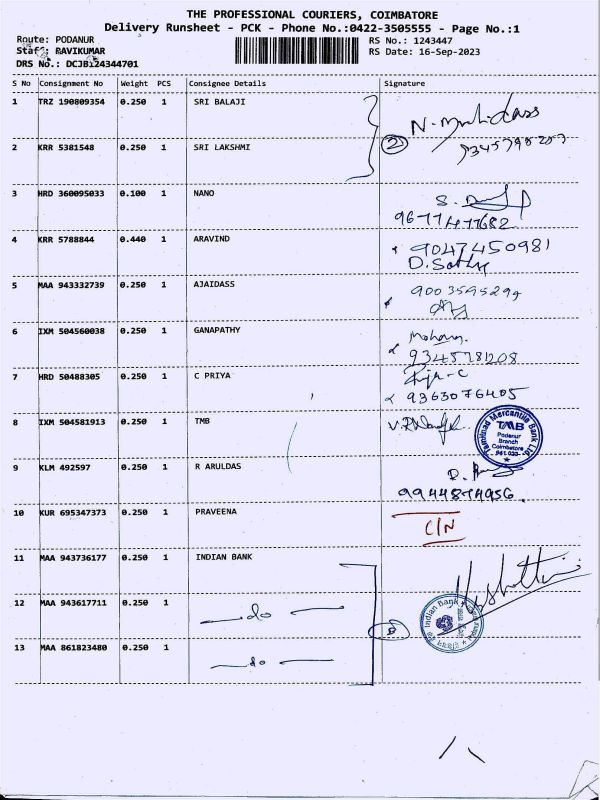 THE PROFESSIONAL COURIERS, COIMBATORE
Delivery Runsheet - PCK - Phone No.:0422-3505555 - Page No.:1
Route: PODANUR RS No.: 1243447
Staff: RAVIKUMAR RS Date: 16-Sep-2023
DRS No.: DCJB124344701
S No Consignment No Weight PCS Consignee Details Signature
1 TRZ 190809354 0.250 1 SRI BALAJI
2 KRR 5381548 0.250 1 SRI LAKSHMI
3 HRD 360095033 0.100 1 NANO
9677477682
4 KRR 5788844 0.440 1 ARAVIND 9047450981
5 MAA 943332739 0.250 1 AJAIDASS
6 IXM 504560038 0.250 1 GANAPATHY
9345781208
7 HRD 50488305 0.250 1 C PRIYA
9363076405
8 IXM 504581913 0.250 1 TMB
Tamilnad Mercantile Bank Ltd.
TMB
Podanur
Branch
Coimbatore
641 023
9 KLM 492597 0.250 1 R ARULDAS
9944874956
10 KUR 695347373 0.250 1 PRAVEENA C/N
11 MAA 943736177 0.250 1 INDIAN BANK
12 MAA 943617711 0.250 1 do
Indian Bank
13 MAA 861823480 0.250 1 do